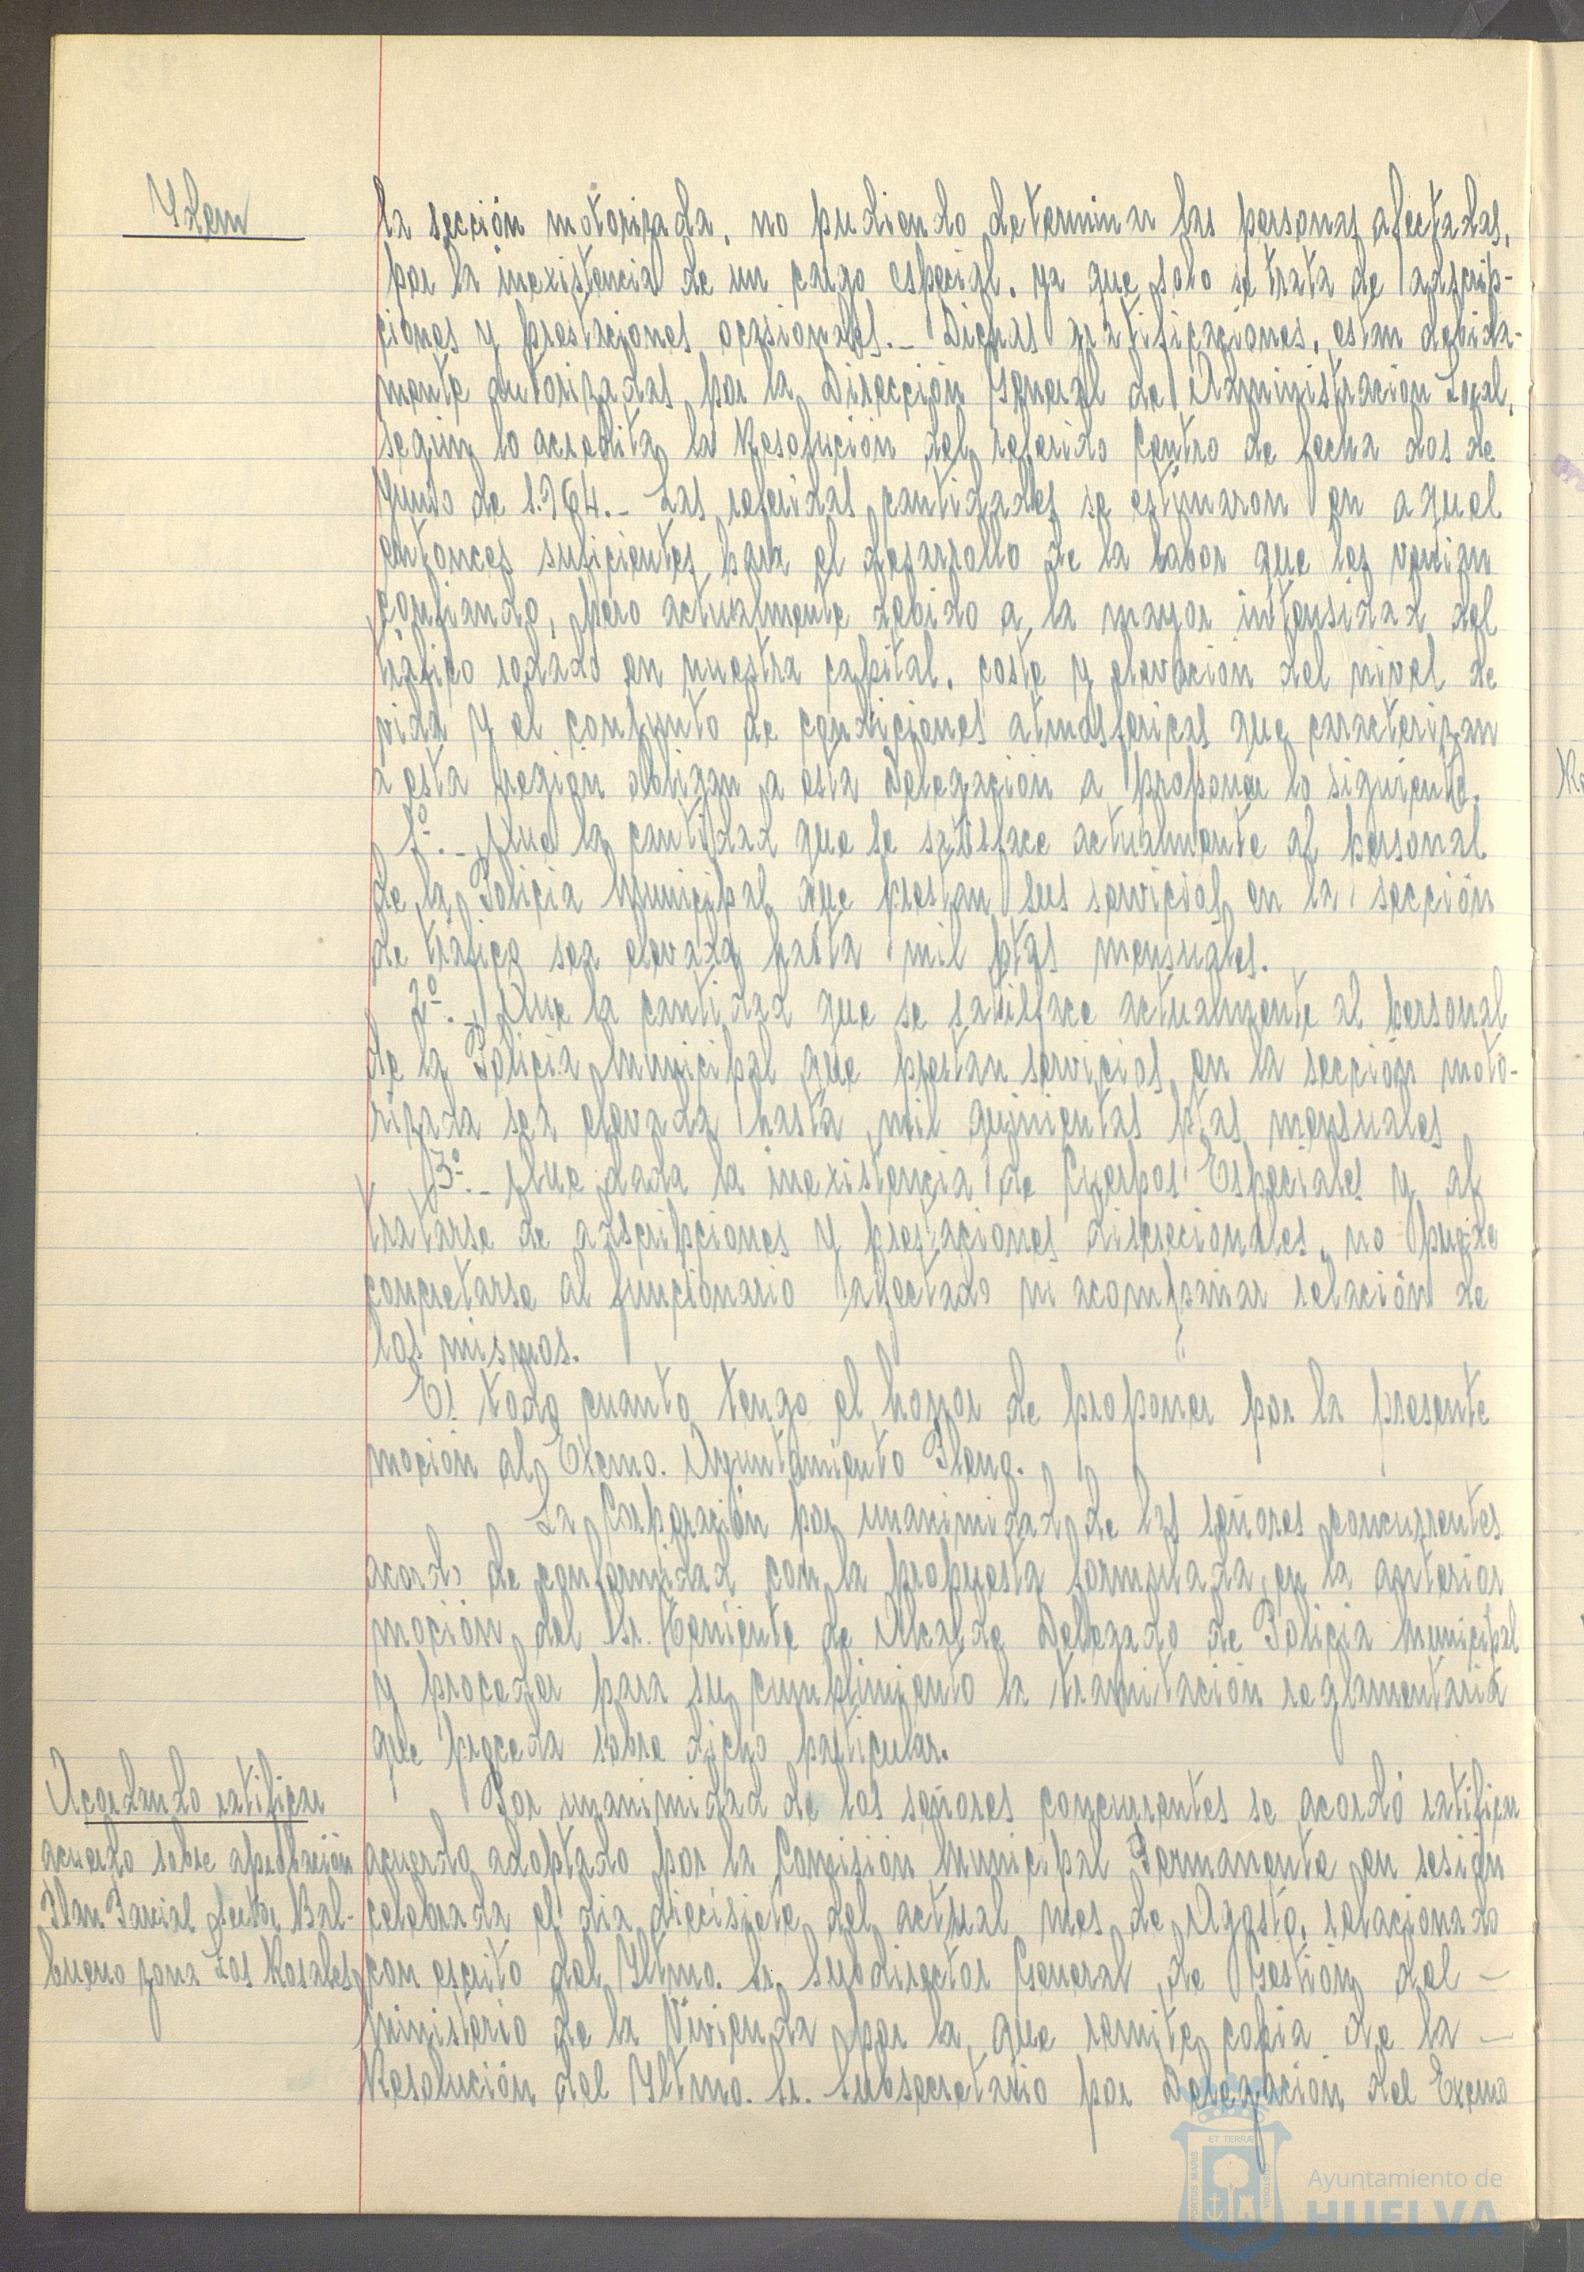 Ydem
la sección motorizada, no pudiendo determinar las personas afectadas,
por la inexistencia de un cargo especial, ya que solo se trata de adscrip-
ciones y prestaciones ocasionales.- Dichas gratificaciones, estan debida-
mente autorizadas por la Dirección General de Administración Local,
según lo acredita la Resolución del referido Centro de fecha dos de
Junio de 1.964.- Las referidas cantidades se estimaron en aquel
entonces suficientes para el desarrollo de la labor que les venian
confiando, pero actualmente debido a la mayor intensidad del
tráfico rodado en nuestra capital, coste y elevación del nivel de
vida y el conjunto de condiciones atmosfericas que caracterizan
a esta región obligan a esta Delegación a proponer lo siguiente.
1º.- Que la cantidad que se satisface actualmente al personal
de la Policia Municipal que prestan sus servicios en la sección
de tráfico sea elevada hasta mil ptas mensuales.
2º.- Que la cantidad que se satisface actualmente al personal
de la Policia Municipal que prestan servicios en la sección moto-
rizada sea elevada hasta mil quinientas ptas mensuales
3º.- Que dada la inexistencia de Cuerpos Especiales y al
tratarse de adscripciones y prestaciones discrecionales, no puede
concretarse al funcionario afectado ni acompañar relación de
los mismos.
Es todo cuanto tengo el honor de proponer por la presente
moción al Excmo. Ayuntamiento Pleno.
La Corporación por unanimidad de los señores concurrentes
acordó de conformidad con la propuesta formulada en la anterior
moción del Sr. Teniente de Alcalde Delegado de Policia Municipal
y proceder para su cumplimiento la tramitación reglamentaria
que proceda sobre dicho particular.
Acordando ratificar
acuerdo sobre aprobación
Plan Parcial Sector Bal-
bueno zona Los Rosales
Por unanimidad de los señores concurrentes se acordó ratificar
acuerdo adoptado por la Comisión Municipal Permanente en sesión
celebrada el dia diecisiete del actual mes de Agosto, relacionado
con escrito del Yltmo. Sr. Subdirector General de Gestión del -
Ministerio de la Vivienda por la que remite copia de la -
Resolución del Yltmo. Sr. Subsecretario por Delegación del Excmo
ET TERRAE
PORTUS MARIS
CUSTODIA
Ayuntamiento de
HUELVA